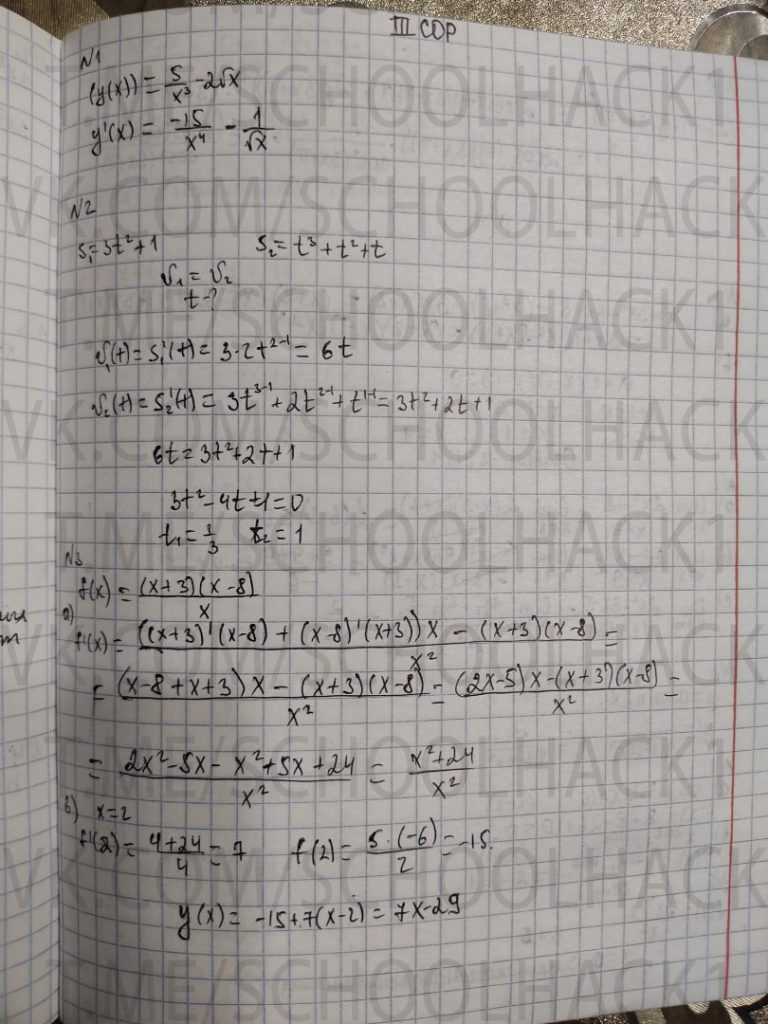 III СОР
N1
(y(x)) = 5/x³ - 2√x
y'(x) = -15/x⁴ - 1/√x
N2
S₁=3t²+1 S₂= t³+t²+t
υ₁ = υ₂
t-?
υ₁(t) = S₁'(t) = 3·2t²⁻¹ = 6t
υ₂(t) = S₂'(t) = 3t³⁻¹+2t²⁻¹+t¹⁻¹= 3t²+2t+1
6t = 3t²+2t+1
3t²-4t+1=0
t₁= 1/3 t₂= 1
N3
f(x) = (x+3)(x-8)/x
a)
f'(x) = ((x+3)'(x-8) + (x-8)'(x+3))x - (x+3)(x-8)/x² =
= (x-8+x+3)x - (x+3)(x-8)/x² = (2x-5)x-(x+3)(x-8)/x² =
= 2x²-5x-x²+5x+24/x² = x²+24/x²
b) x=2
f'(2) = 4+24/4 = 7 f(2) = 5·(-6)/2 = -15.
y(x) = -15+7(x-2) = 7x-29
T.ME/SCHOOLHACK1
VK.COM/SCHOOLHACK
T.ME/SCHOOLHACK1
VK.COM/SCHOOLHACK
T.ME/SCHOOLHACK1
VK.COM/SCHOOLHACK
T.ME/SCHOOLHACK1
VK.COM/SCHOOLHACK
T.ME/SCHOOLHACK1